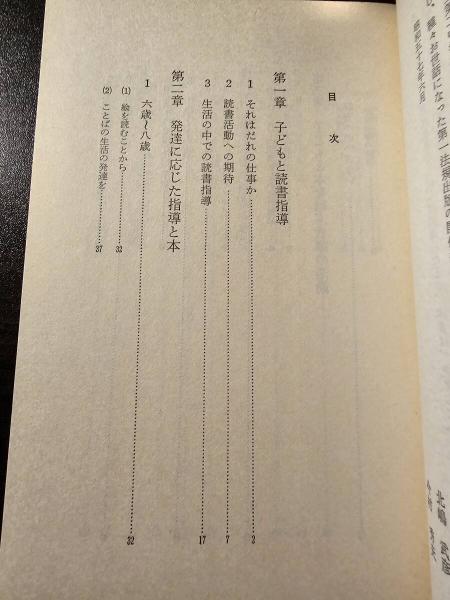 々お世話になった第一法規出版の
昭和五十七年六月
北嶋武彦
目次
第一章 子どもと読書指導
1 それはだれの仕事か……2
2 読書活動への期待……7
3 生活の中での読書指導……17
第二章 発達に応じた指導と本
1 六歳〜八歳……32
(1) 絵を読むことから……32
(2) ことばの生活の発達を……37